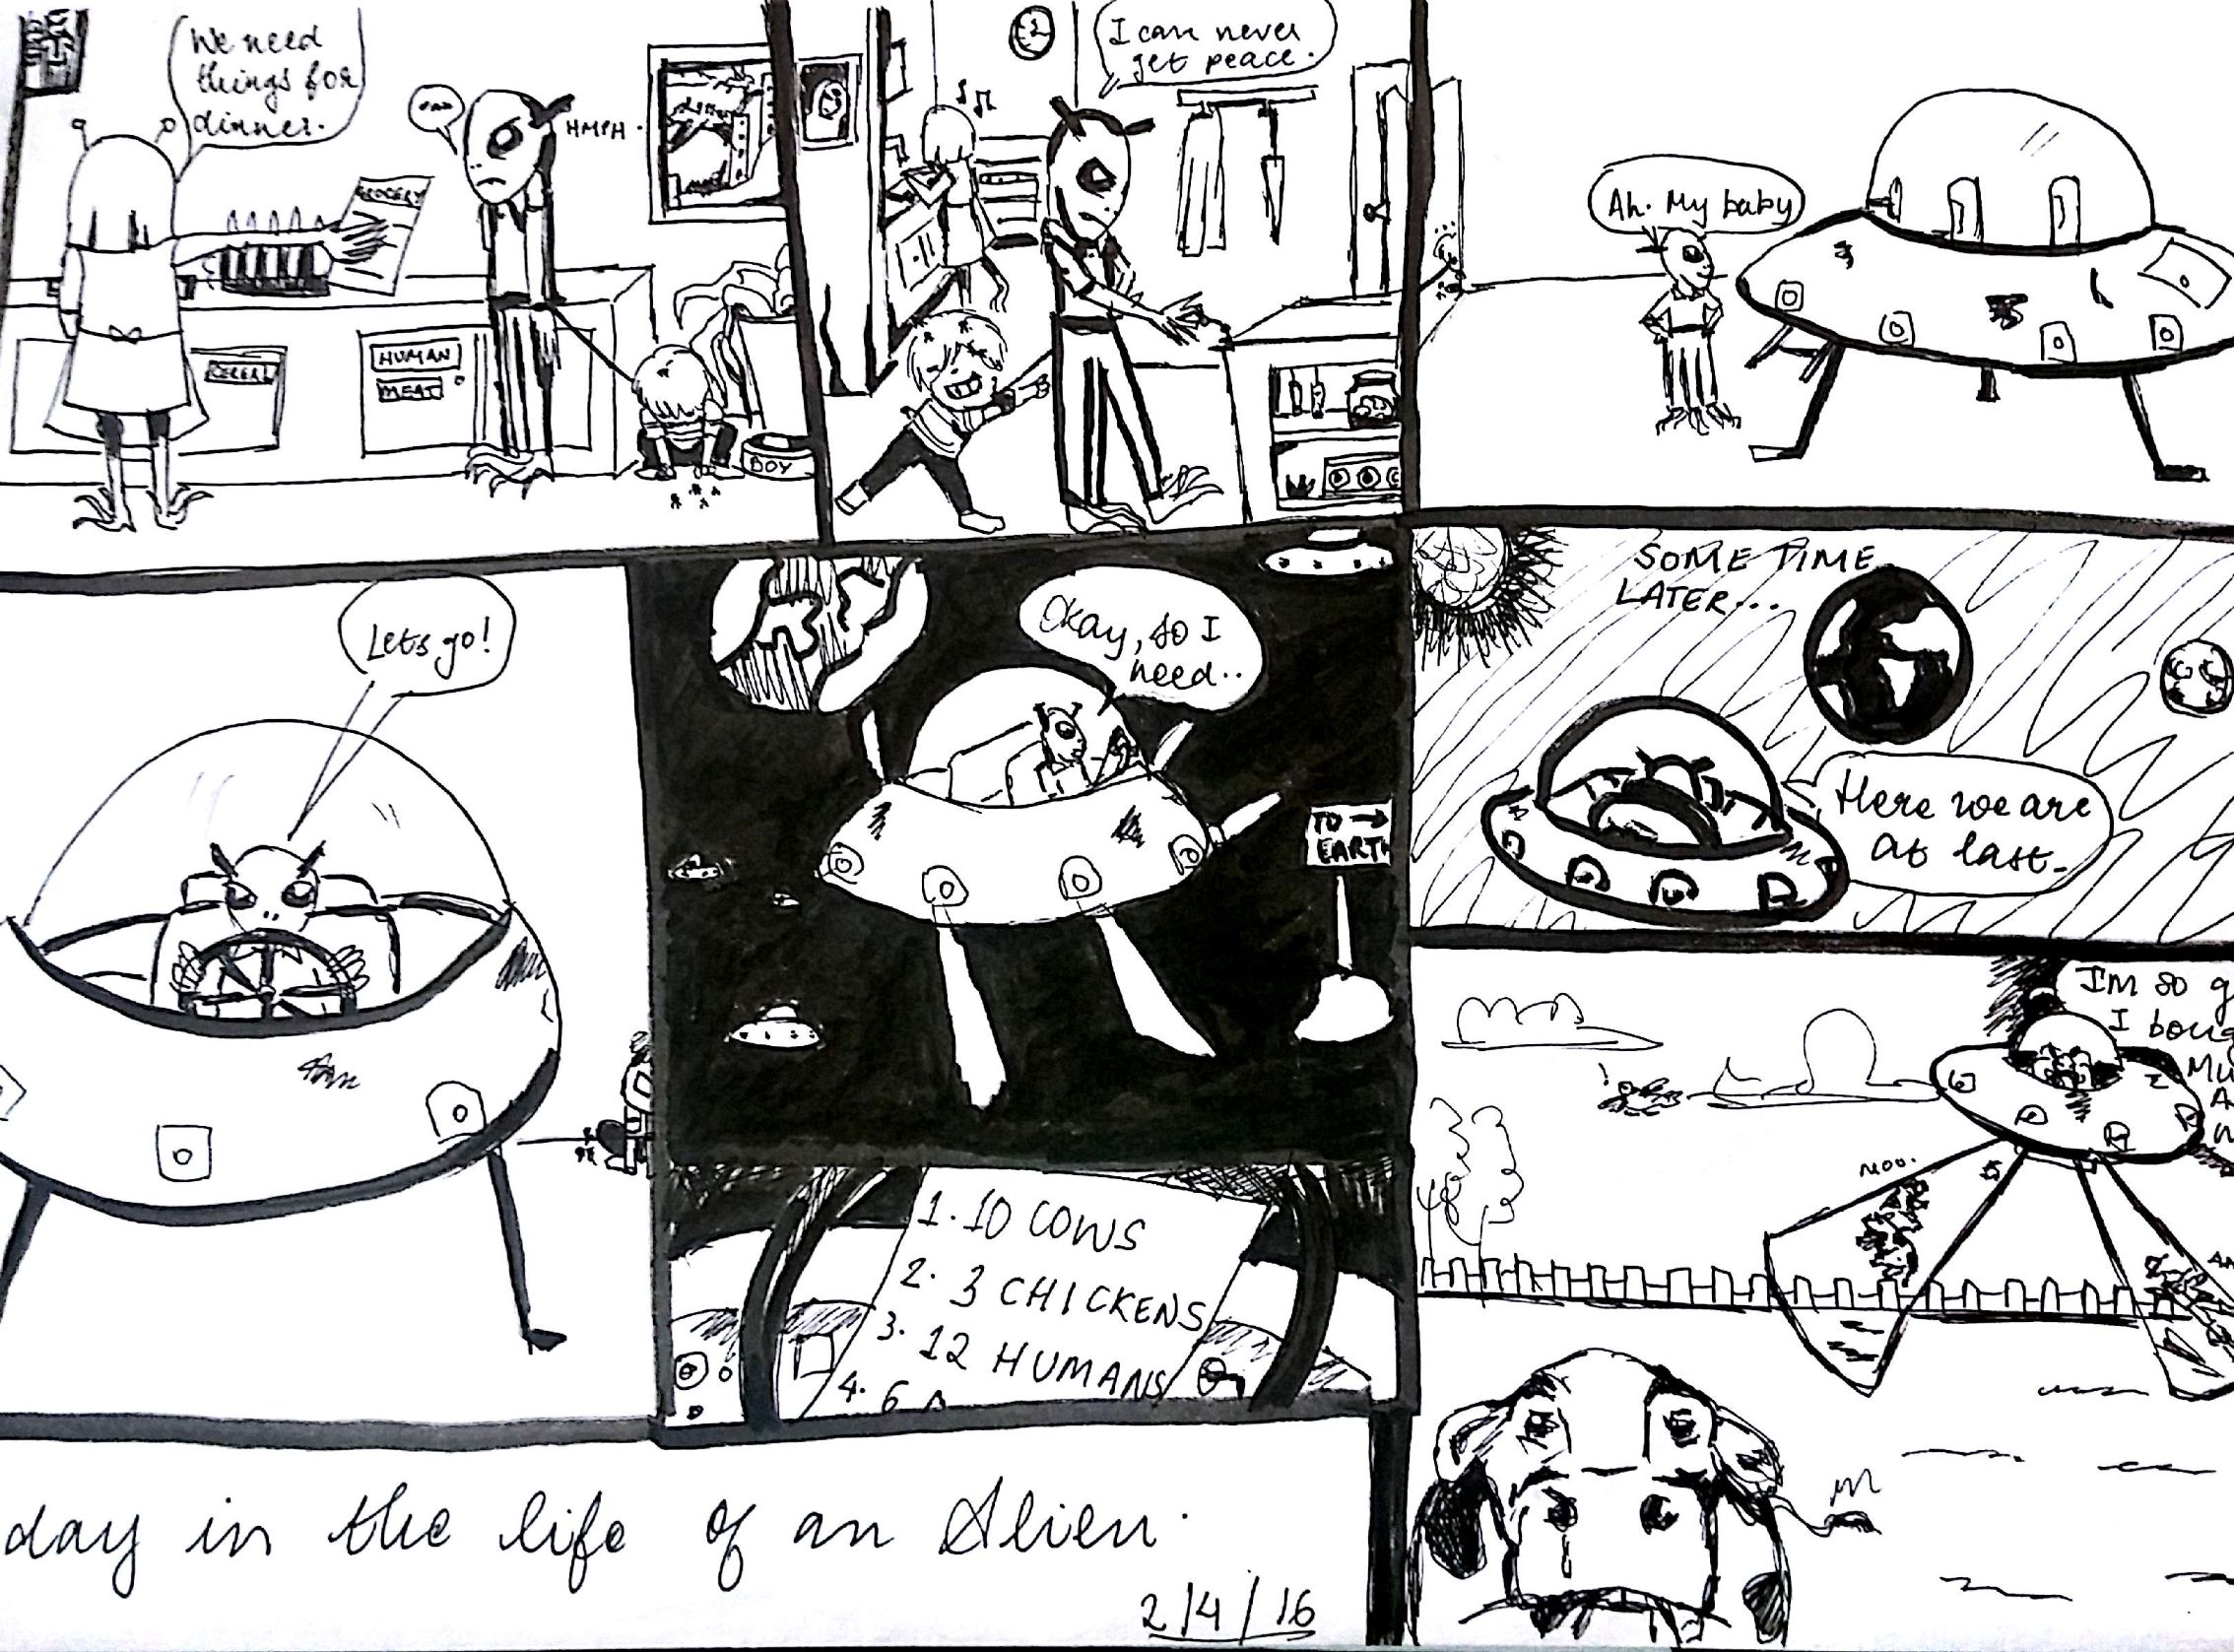 We need
things for
dinner.
HMPH.
GROCERY
CEREAL
HUMAN
MEAT
BOY
I can never
get peace.
Ah. My baby
Lets go!
Okay, so I
need..
TO →
EARTH
1. 10 COWS
2. 3 CHICKENS
3. 12 HUMANS
4. 6
SOME TIME
LATER...
Here we are
at last.
I'M so g
I boug
Mu
A
moo.
day in the life of an Alien.
2/4/16